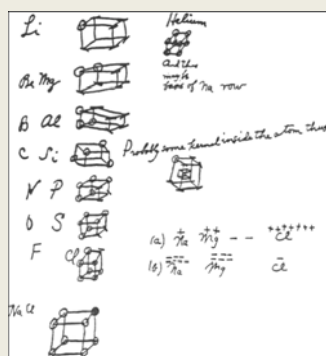 Li
Helium
And this
may be
base of Na row
Be Mg
B Al
C Si
Probably some kernel inside the atom thus
N P
O S
F Cl
(a) + Na ++ Mg - - +++++++ Cl
(b) Na Mg - Cl
Na Cl